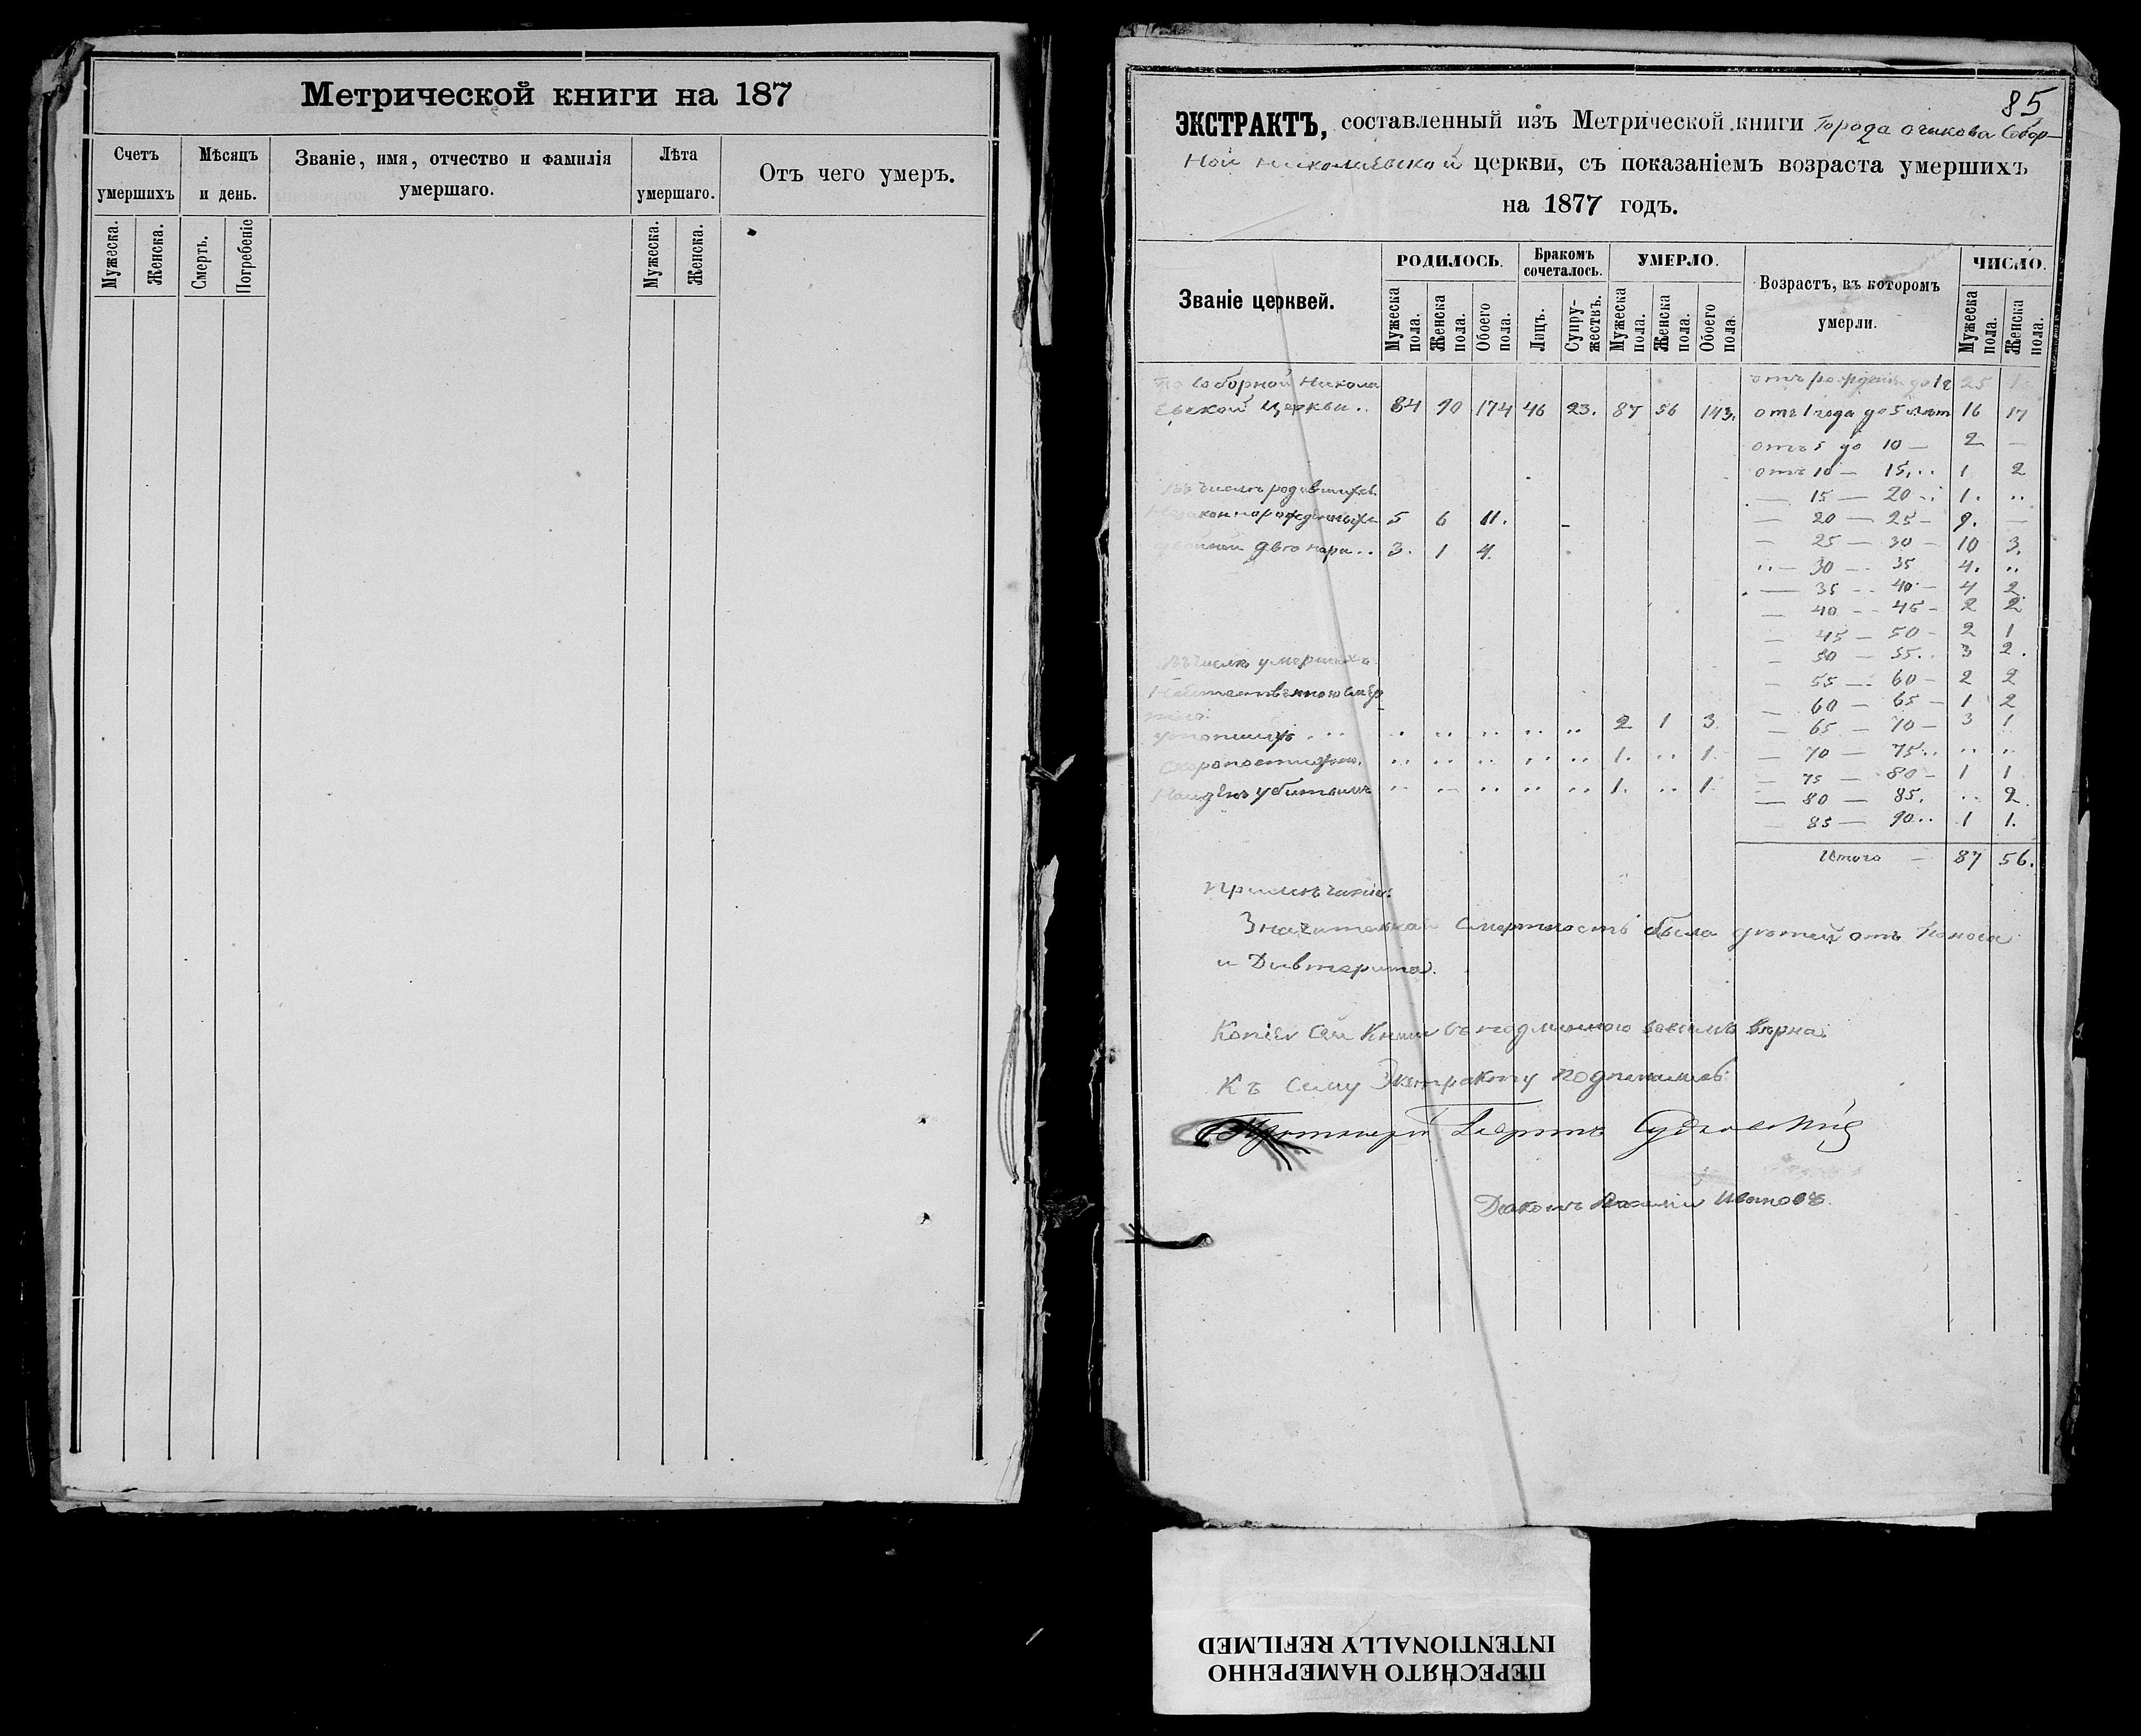 Метрической книги на 187
Счетъ умершихъ
Мѣсяцъ и день.
Званіе, имя, отчество и фамилія умершаго.
Лѣта умершаго.
Отъ чего умеръ.
Мужеска. Женска. Смерть. Погребеніе Мужеска. Женска.
85
ЭКСТРАКТЪ, составленный изъ Метрической книги Города Очакова Собор-
ной Николаевской церкви, съ показаніемъ возраста умершихъ
на 1877 годъ.
Званіе церквей.
РОДИЛОСЬ. Бракомъ сочеталось. УМЕРЛО. Возрастъ, въ которомъ умерли. ЧИСЛО.
Мужеска пола. Женска пола. Обоего пола. Лицъ. Супружествъ. Мужеска пола. Женска пола. Обоего пола. Мужеска пола. Женска пола.
По Соборной Никола отъ рожденія до 1 г 25
евской Церкви .. 84 90 174 46 23. 87 56 143. отъ 1 года до 5 лѣтъ 16 17
отъ 5 до 10 — 2 —
отъ 10 — 15... 1 2
Въ числѣ родившихся
— 15 — 20 .. 1. ..
Незаконнорожденныхъ 5 6 11. — 20 — 25 — 9. —
— 25 — 30 — 10 3.
двойни две пары .. 3. 1 4.
— 30 — 35 4. ..
— 35 — 40 — 4 2
— 40 — 45 — 2 2
— 45 — 50 — 2 1
— 50 — 55.. 3 2.
Въ числѣ умершихъ
— 55 — 60 — 2 2
— 60 — 65 — 1 2
— 65 — 70 — 3 1
.. .. .. .. .. 2 1 3.
— 70 — 75.. .. ..
Скоропостижно. .. .. .. .. .. 1. .. 1.
— 75 — 80 — 1 1
Найденъ убитымъ .. — .. .. .. 1. .. 1
— 80 — 85. .. 2.
— 85 — 90.. 1 1.
Итого — 87 56.
Примѣчаніе:
Значительная смертность была дѣтей отъ Поноса
и Дивтерита.
Копія сей Книги съ подлинною вовсемъ вѣрна:
Къ Сему Экстракту подписались:
Протоиерей Георгій Судковскій
Діаконъ Василій Ивановъ.
ПЕРЕСНЯТО НАМЕРЕННО
INTENTIONALLY REFILMED